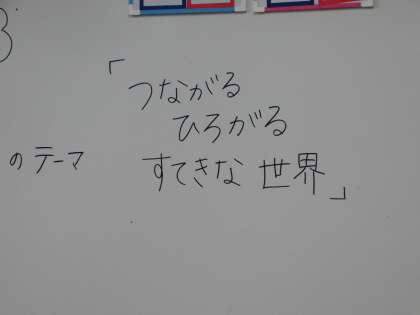 「つながる
ひろがる
のテーマ すてきな 世界」